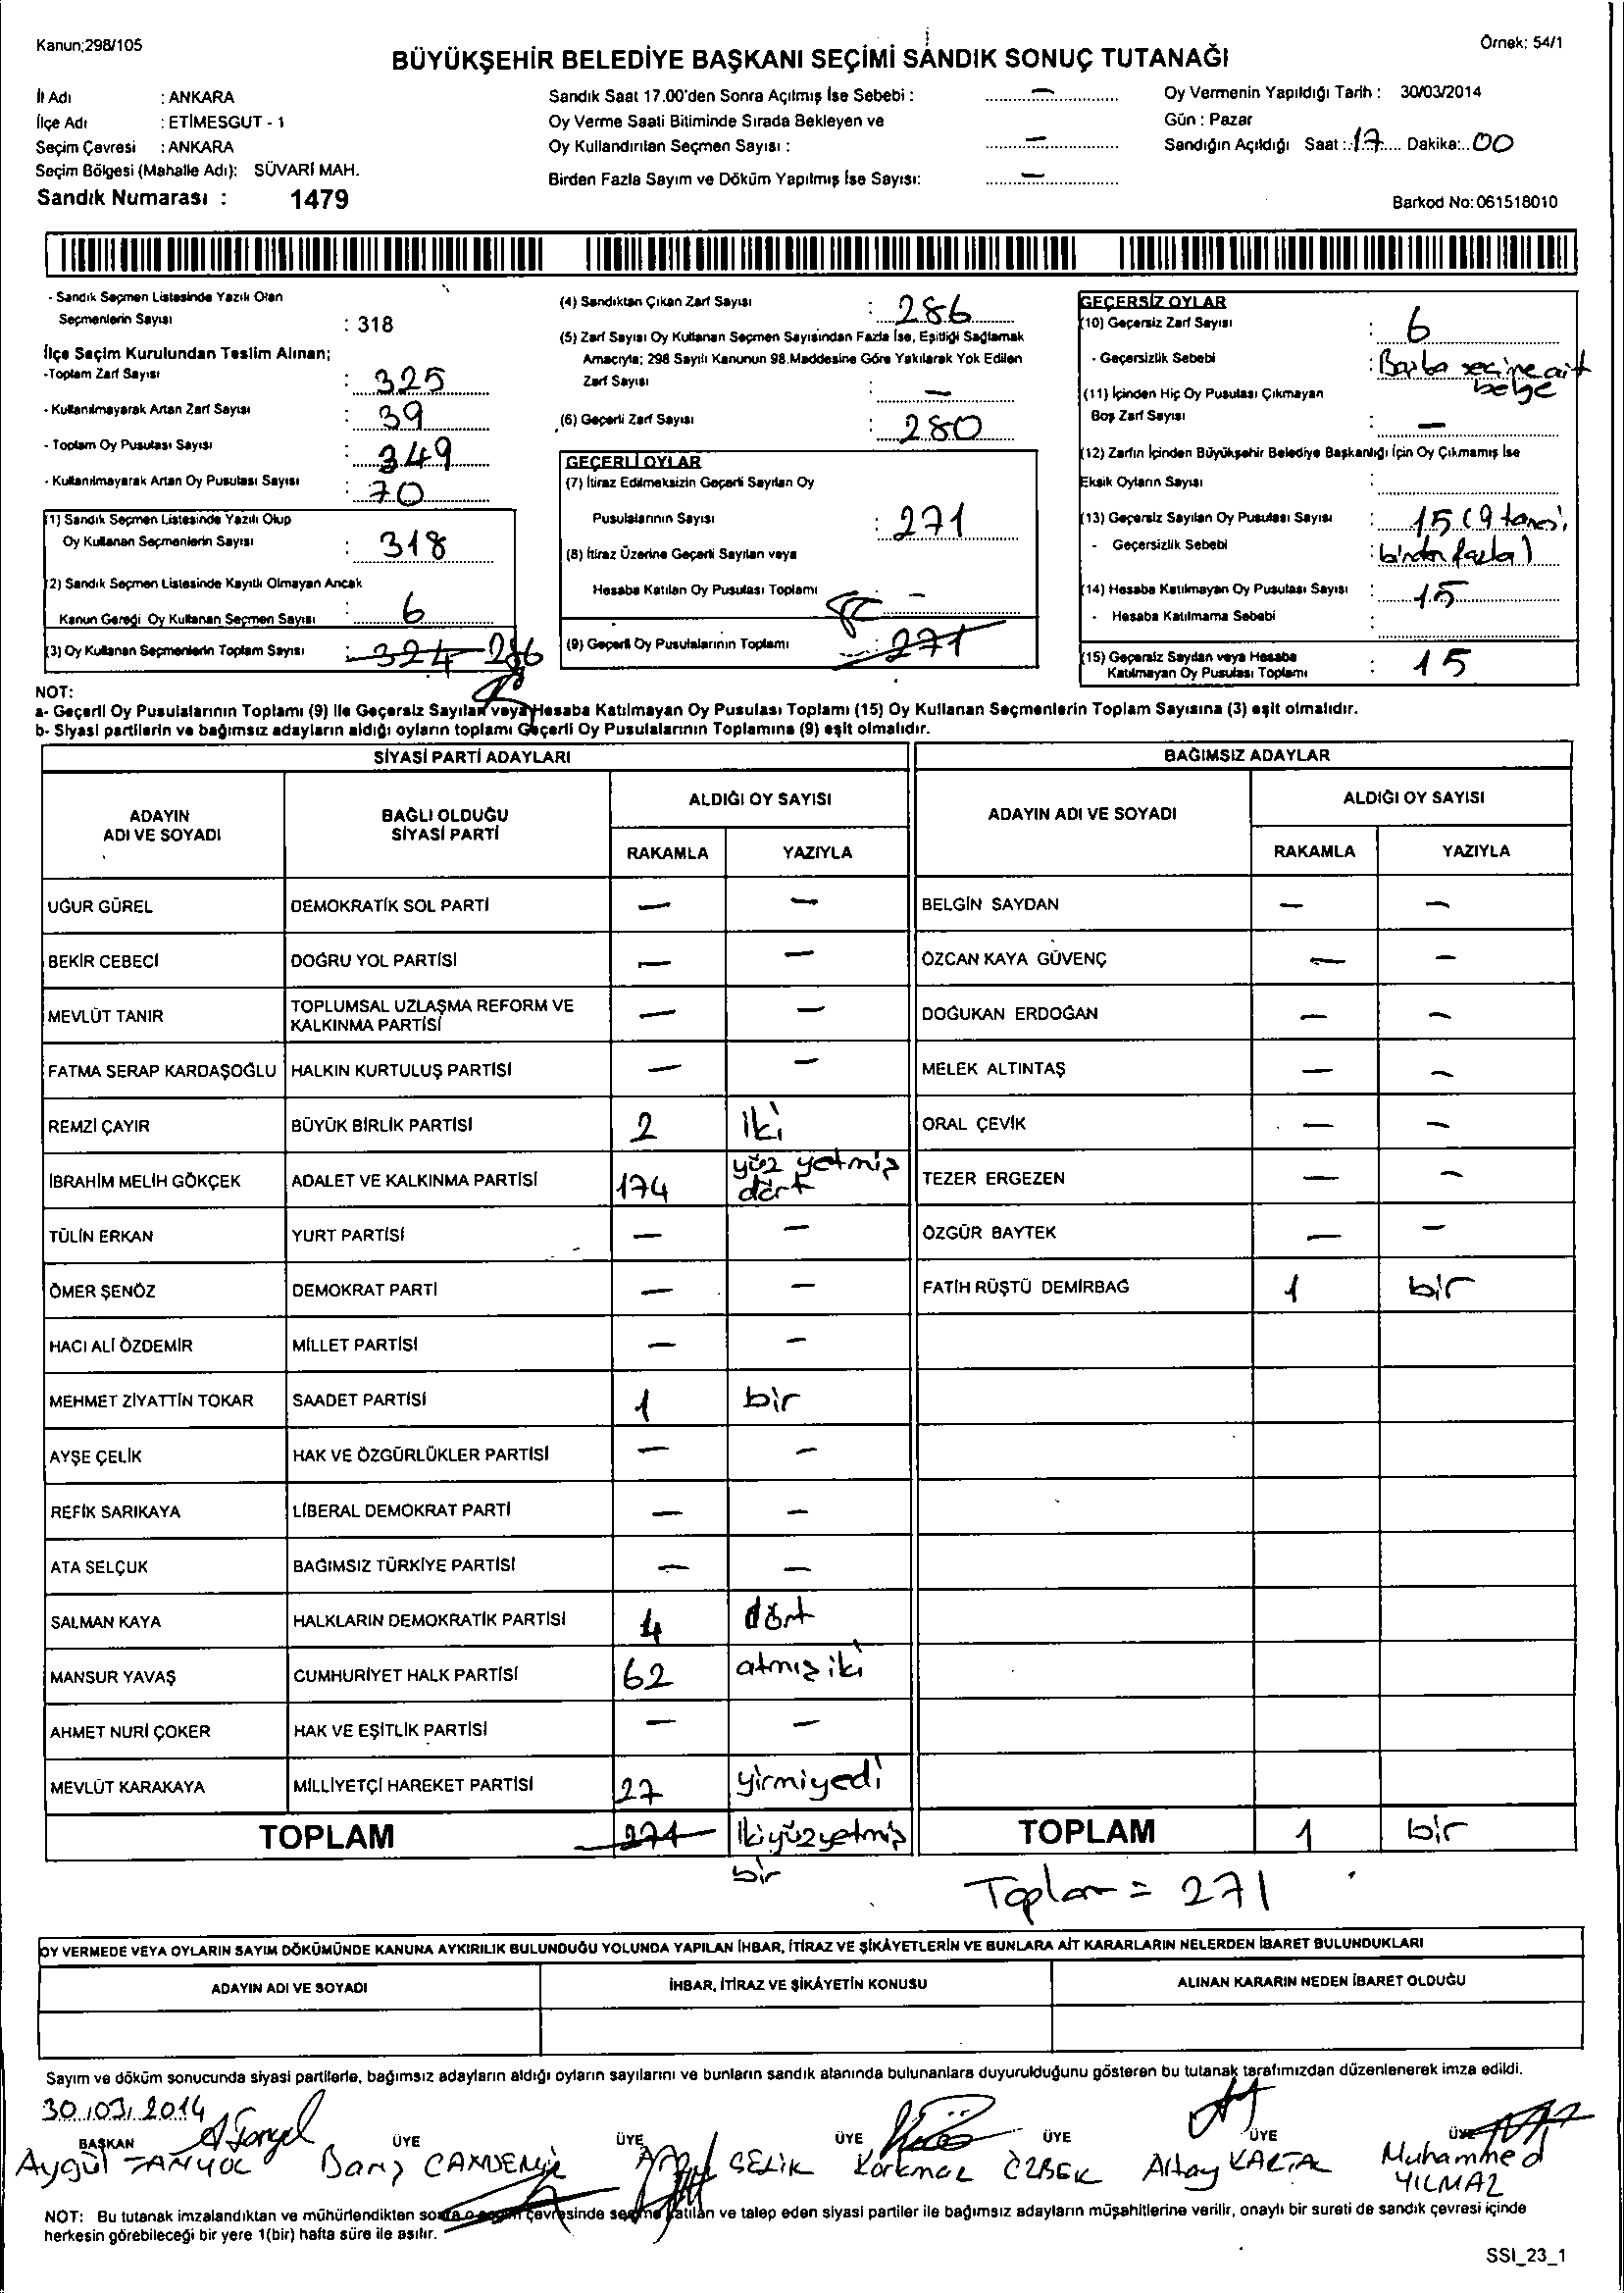 Kanun;298/105
Örnek: 54/1
BÜYÜKŞEHİR BELEDİYE BAŞKANI SEÇİMİ SANDIK SONUÇ TUTANAĞI
İl Adı : ANKARA
İlçe Adı : ETİMESGUT - 1
Seçim Çevresi : ANKARA
Seçim Bölgesi (Mahalle Adı): SÜVARİ MAH.
Sandık Numarası : 1479
Sandık Saat 17.00'den Sonra Açılmış İse Sebebi : —
Oy Verme Saati Bitiminde Sırada Bekleyen ve
Oy Kullandırılan Seçmen Sayısı : —
Birden Fazla Sayım ve Döküm Yapılmış İse Sayısı: —
Oy Vermenin Yapıldığı Tarih : 30/03/2014
Gün : Pazar
Sandığın Açıldığı Saat : 17 Dakika: 00
Barkod No: 061518010
- Sandık Seçmen Listesinde Yazılı Olan
Seçmenlerin Sayısı : 318
İlçe Seçim Kurulundan Teslim Alınan;
-Toplam Zarf Sayısı : 325
- Kullanılmayarak Artan Zarf Sayısı : 39
- Toplam Oy Pusulası Sayısı : 349
- Kullanılmayarak Artan Oy Pusulası Sayısı : 70
(1) Sandık Seçmen Listesinde Yazılı Olup
Oy Kullanan Seçmenlerin Sayısı : 318
(2) Sandık Seçmen Listesinde Kayıtlı Olmayan Ancak
Kanun Gereği Oy Kullanan Seçmen Sayısı : 6
(3) Oy Kullanan Seçmenlerin Toplam Sayısı : 324 286
(4) Sandıktan Çıkan Zarf Sayısı : 286
(5) Zarf Sayısı Oy Kullanan Seçmen Sayısından Fazla İse, Eşitliği Sağlamak
Amacıyla; 298 Sayılı Kanunun 98.Maddesine Göre Yakılarak Yok Edilen
Zarf Sayısı : —
(6) Geçerli Zarf Sayısı : 280
GEÇERLİ OYLAR
(7) İtiraz Edilmeksizin Geçerli Sayılan Oy
Pusulalarının Sayısı : 271
(8) İtiraz Üzerine Geçerli Sayılan veya
Hesaba Katılan Oy Pusulası Toplamı : —
(9) Geçerli Oy Pusulalarının Toplamı : 271
GEÇERSİZ OYLAR
(10) Geçersiz Zarf Sayısı : 6
- Geçersizlik Sebebi : Başka seçime ait
belge
(11) İçinden Hiç Oy Pusulası Çıkmayan
Boş Zarf Sayısı : —
(12) Zarfın İçinden Büyükşehir Belediye Başkanlığı İçin Oy Çıkmamış İse
Eksik Oyların Sayısı :
(13) Geçersiz Sayılan Oy Pusulası Sayısı : 15 (9 tanesi
- Geçersizlik Sebebi : birden fazla)
(14) Hesaba Katılmayan Oy Pusulası Sayısı : 15
- Hesaba Katılmama Sebebi :
(15) Geçersiz Sayılan veya Hesaba
Katılmayan Oy Pusulası Toplamı : 15
NOT:
a- Geçerli Oy Pusulalarının Toplamı (9) ile Geçersiz Sayılan veya Hesaba Katılmayan Oy Pusulası Toplamı (15) Oy Kullanan Seçmenlerin Toplam Sayısına (3) eşit olmalıdır.
b- Siyasi partilerin ve bağımsız adayların aldığı oyların toplamı Geçerli Oy Pusulalarının Toplamına (9) eşit olmalıdır.
SİYASİ PARTİ ADAYLARI
BAĞIMSIZ ADAYLAR
ADAYIN ADI VE SOYADI
BAĞLI OLDUĞU SİYASİ PARTİ
ALDIĞI OY SAYISI
RAKAMLA YAZIYLA
ADAYIN ADI VE SOYADI
ALDIĞI OY SAYISI
RAKAMLA YAZIYLA
UĞUR GÜREL DEMOKRATİK SOL PARTİ — — BELGİN SAYDAN — —
BEKİR CEBECİ DOĞRU YOL PARTİSİ — — ÖZCAN KAYA GÜVENÇ — —
MEVLÜT TANIR TOPLUMSAL UZLAŞMA REFORM VE KALKINMA PARTİSİ — — DOĞUKAN ERDOĞAN — —
FATMA SERAP KARDAŞOĞLU HALKIN KURTULUŞ PARTİSİ — — MELEK ALTINTAŞ — —
REMZİ ÇAYIR BÜYÜK BİRLİK PARTİSİ 2 İki ORAL ÇEVİK — —
İBRAHİM MELİH GÖKÇEK ADALET VE KALKINMA PARTİSİ 174 yüz yetmiş dört TEZER ERGEZEN — —
TÜLİN ERKAN YURT PARTİSİ — — ÖZGÜR BAYTEK — —
ÖMER ŞENÖZ DEMOKRAT PARTİ — — FATİH RÜŞTÜ DEMİRBAĞ 1 bir
HACI ALİ ÖZDEMİR MİLLET PARTİSİ — —
MEHMET ZİYATTİN TOKAR SAADET PARTİSİ 1 bir
AYŞE ÇELİK HAK VE ÖZGÜRLÜKLER PARTİSİ — —
REFİK SARIKAYA LİBERAL DEMOKRAT PARTİ — —
ATA SELÇUK BAĞIMSIZ TÜRKİYE PARTİSİ — —
SALMAN KAYA HALKLARIN DEMOKRATİK PARTİSİ 4 dört
MANSUR YAVAŞ CUMHURİYET HALK PARTİSİ 62 atmış iki
AHMET NURİ ÇOKER HAK VE EŞİTLİK PARTİSİ — —
MEVLÜT KARAKAYA MİLLİYETÇİ HAREKET PARTİSİ 27 yirmiyedi
TOPLAM 271 İkiyüzyetmiş bir TOPLAM 1 bir
Toplam = 271
OY VERMEDE VEYA OYLARIN SAYIM DÖKÜMÜNDE KANUNA AYKIRILIK BULUNDUĞU YOLUNDA YAPILAN İHBAR, İTİRAZ VE ŞİKÂYETLERİN VE BUNLARA AİT KARARLARIN NELERDEN İBARET BULUNDUKLARI
ADAYIN ADI VE SOYADI İHBAR, İTİRAZ VE ŞİKÂYETİN KONUSU ALINAN KARARIN NEDEN İBARET OLDUĞU
Sayım ve döküm sonucunda siyasi partilerle, bağımsız adayların aldığı oyların sayılarını ve bunların sandık alanında bulunanlara duyurulduğunu gösteren bu tutanak tarafımızdan düzenlenerek imza edildi.
30/03/2014
BAŞKAN ÜYE ÜYE ÜYE ÜYE ÜYE ÜYE
Aygül TANYOL Barış CANDEMİR ÇELİK Korkmaz ÖZBEK Altay KARTAL Muhammed
YILMAZ
NOT: Bu tutanak imzalandıktan ve mühürlendikten sonra o seçim çevresinde seçime katılan ve talep eden siyasi partiler ile bağımsız adayların müşahitlerine verilir, onaylı bir sureti de sandık çevresi içinde
herkesin görebileceği bir yere 1(bir) hafta süre ile asılır.
SSI_23_1